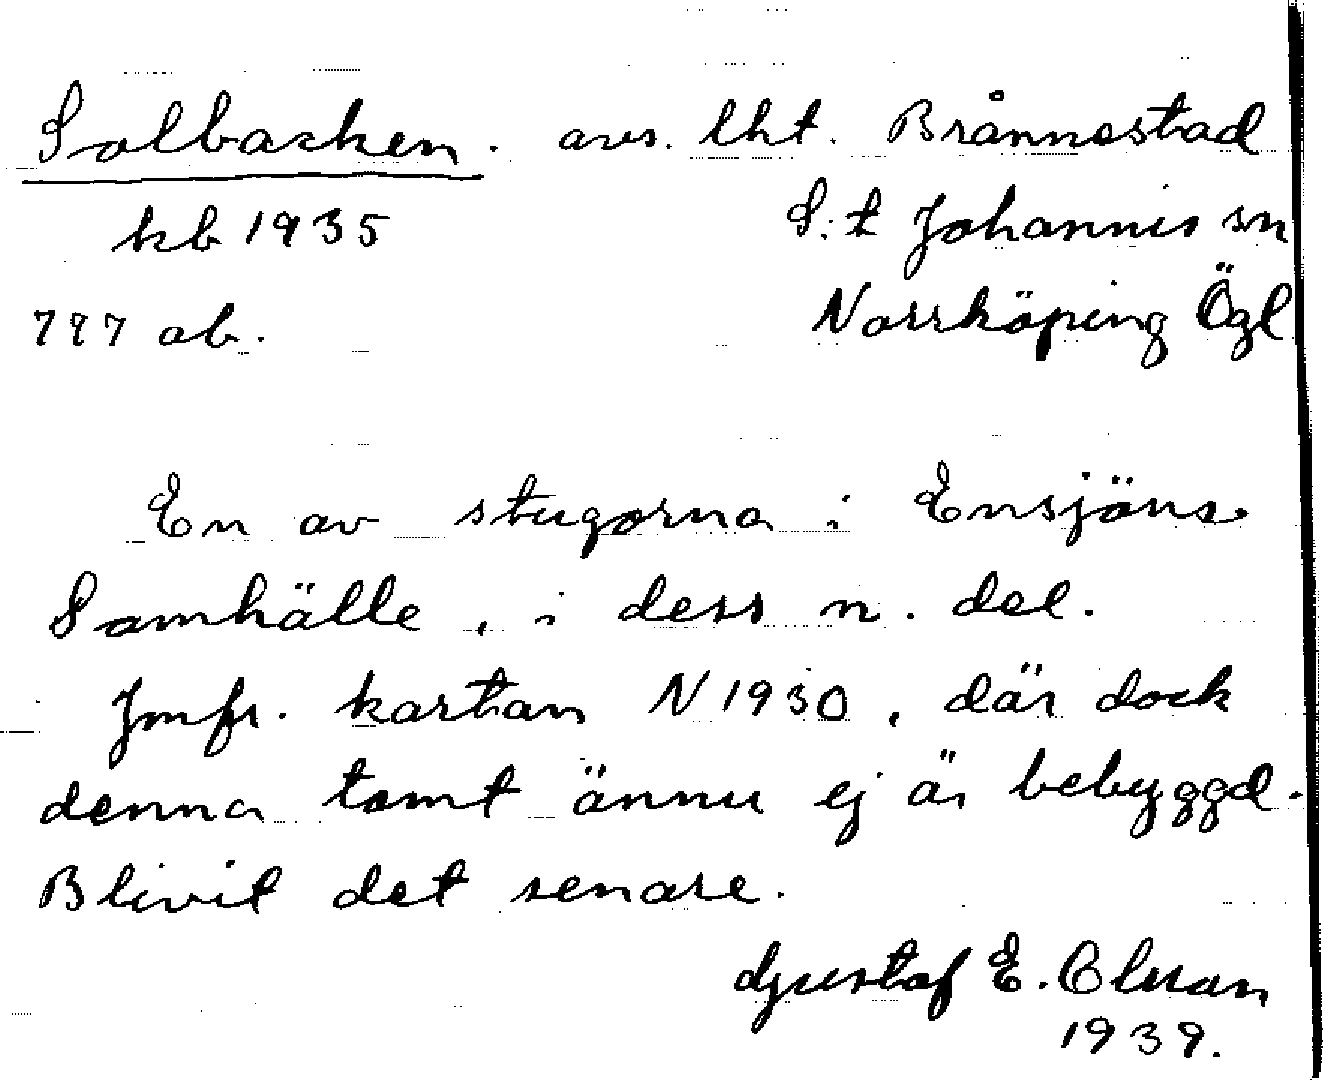 Solbacken. avs. lht. Brånnestad
kb 1935 S:t Johannis sn
797 ab. Norrköping Ögl
En av stugorna i Ensjöns
Samhälle, i dess n. del.
Jmfr. kartan N 1930, där dock
denna tomt ännu ej är bebyggd.
Blivit det senare.
Gustaf E.
1939.